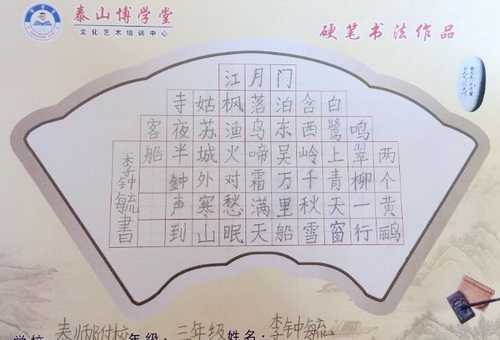 泰山博学堂
文化艺术培训中心
硬笔书法作品
两个黄鹂
鸣翠柳一行
白鹭上青天窗
含西岭千秋雪
门泊东吴万里船
月落乌啼霜满天
江枫渔火对愁眠
姑苏城外寒山
寺夜半鐘声到
客船
李钟毓書
学校:泰师附校年级:三年级姓名:李钟毓